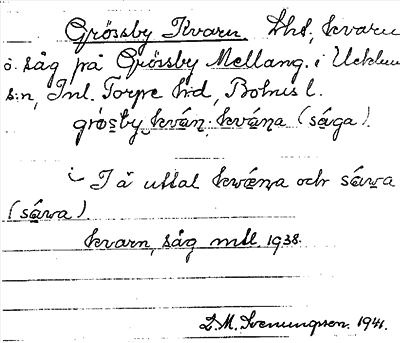 Grössby Kvarn. Lht, kvarn
o. såg på Grössby Mellang. i Ucklum
s:n, Inl. Torpe hrd, Bohus l.
grǿsby kván; kvána (sága).
I ä uttal kwǽna och sáwa
(sáwa)
kvarn, såg mtl. 1938.
L. M. Svenungsson. 1941.